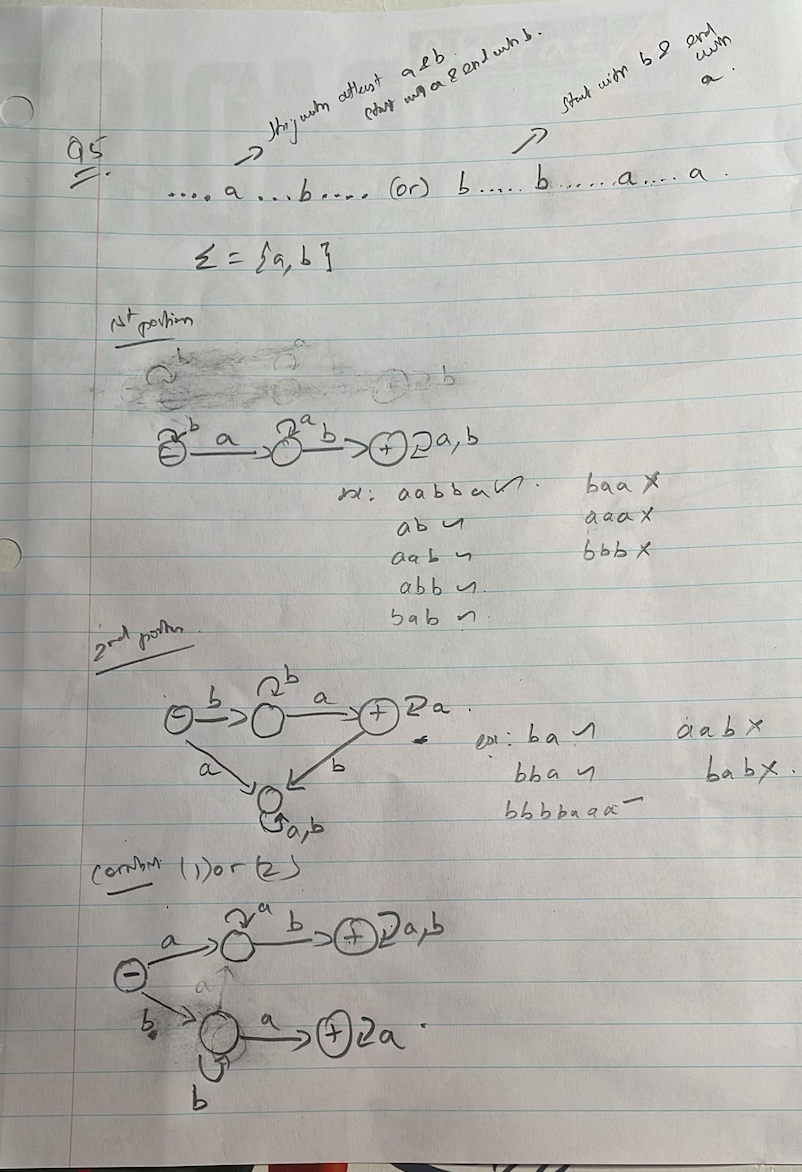 Q5
string with atleast a & b.
start with a & end with b.
start with b & end with a.
.... a ... b .... (or) b ..... b ...... a .... a .
Σ = {a, b}
1st portion
b a b
b a a b a, b
ex: aabba . baa x
ab aaa x
aab bbb x
abb
bab
2nd portion
b b a a
a b
a, b
ex: ba aab x
bba bab x.
bbbbaaa
(1) or (2)
a a b a, b
a
b a a
b